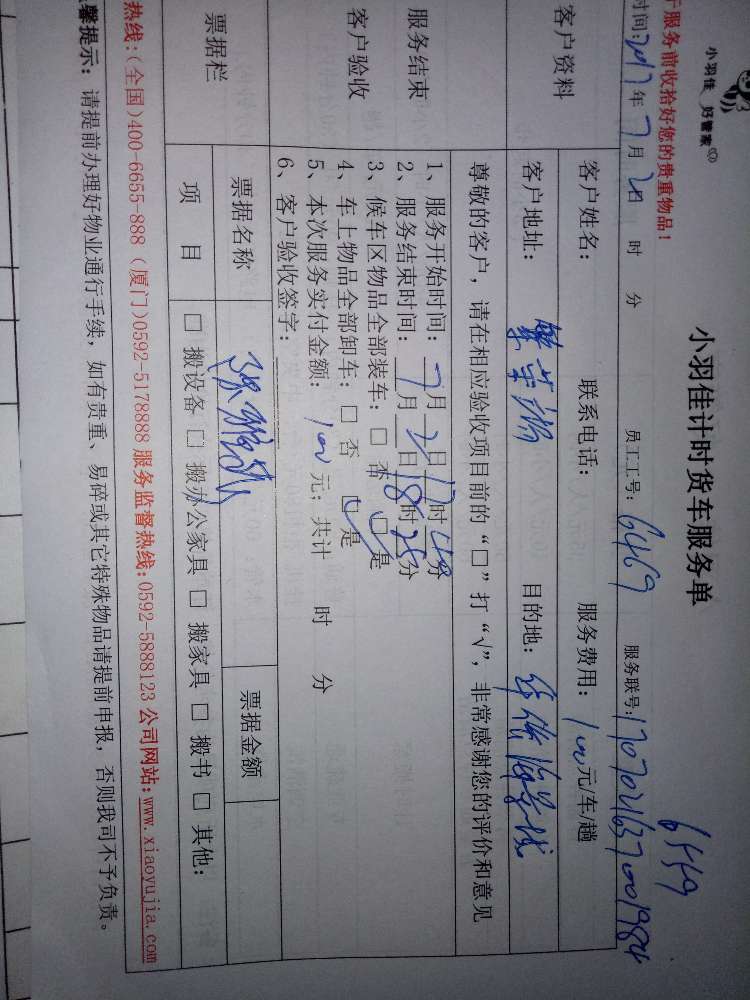 小羽佳 好管家
小羽佳计时货车服务单
6469
于服务前收拾好您的贵重物品!
时间:2017年7月2日 时 分 员工工号:6469 服务联号:1707021637001984
客户资料
客户姓名: 联系电话: 服务费用:100元/车/趟
客户地址: 目的地:
服务结束
客户验收
尊敬的客户,请在相应验收项目前的“□”打“√”,非常感谢您的评价和意见
1、服务开始时间:7月2日17时40分
2、服务结束时间:7月2日18时25分
3、候车区物品全部装车:□ 否 □ 是
4、车上物品全部卸车:□ 否 □ 是
5、本次服务实付金额:100元;共计 时 分
6、客户验收签字:
票据栏
票据名称 票据金额
项 目 □ 搬设备 □ 搬办公家具 □ 搬家具 □ 搬书 □ 其他:
热线:(全国)400-6655-888 (厦门)0592-5178888 服务监督热线:0592-5888123 公司网站:www.xiaoyujia.com
馨提示:请提前办理好物业通行手续,如有贵重、易碎或其它特殊物品请提前申报,否则我司不予负责。